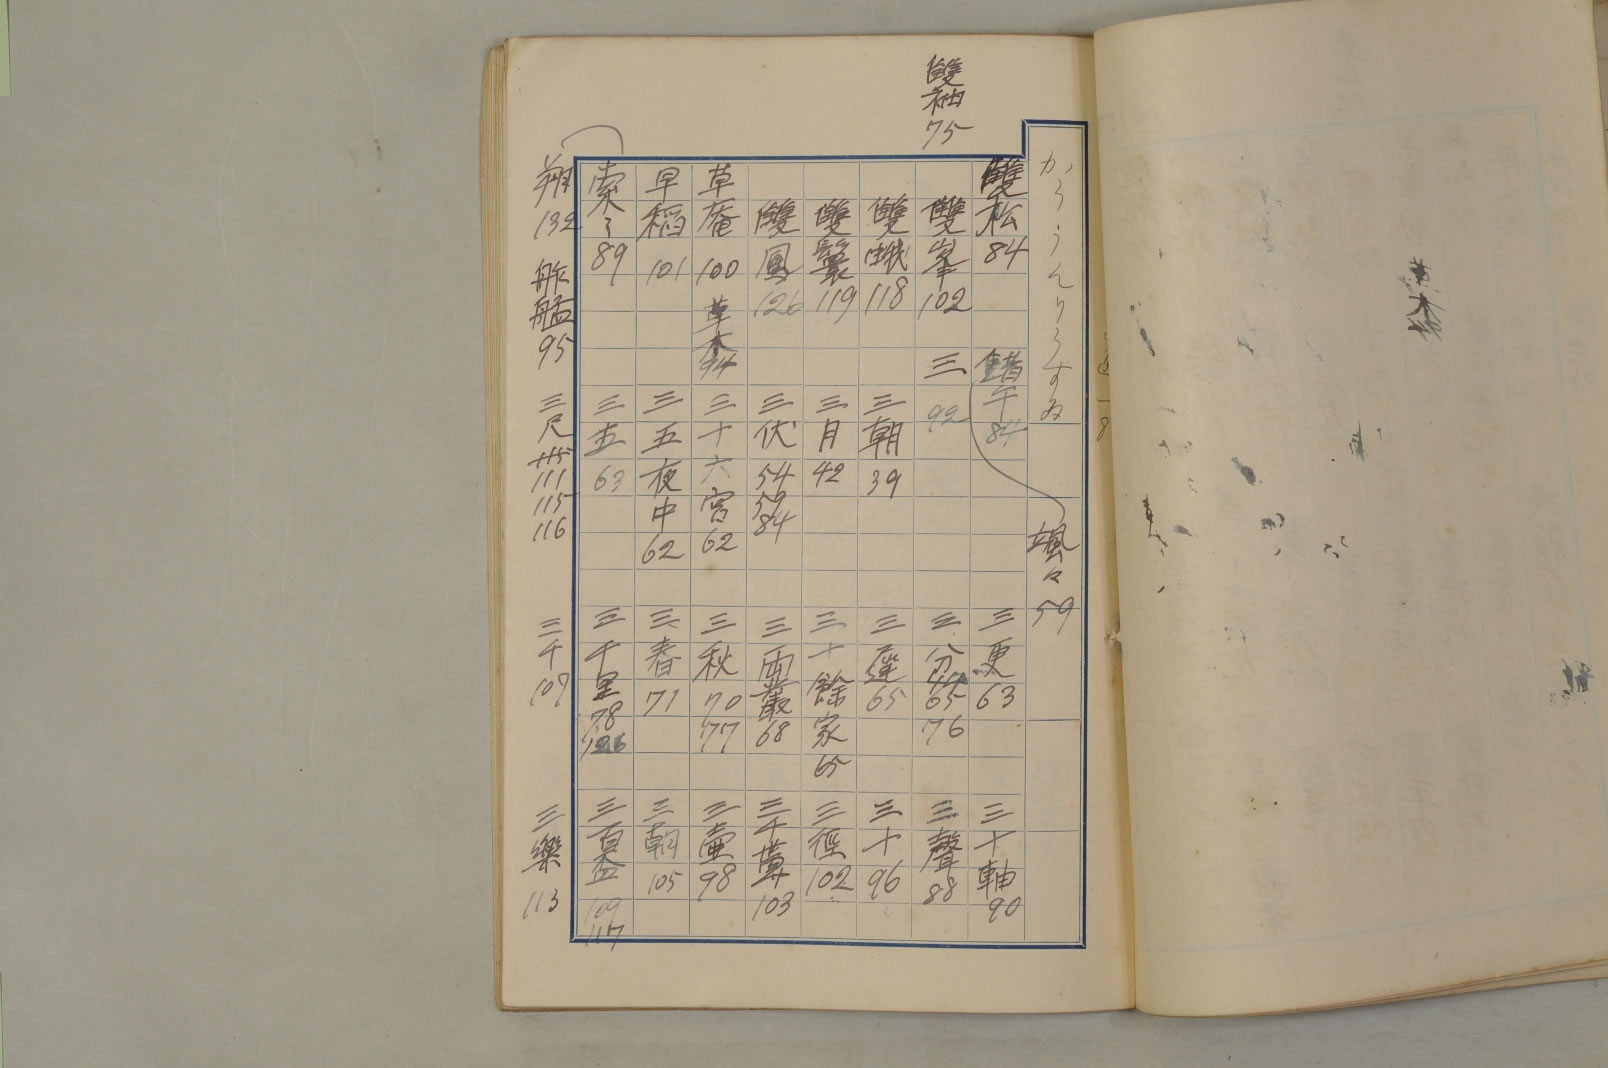 雙袖 75
雙松 84
錯午 84
颯々 59
三更 63
三十軸 90
雙峯 102
三 92
三分 65 76
三聲 88
雙蛾 118
三朝 39
三逕 65
三十 96
雙鬟 119
三月 42
三十餘家 65
三徑 102
雙鳳 126
三伏 54 59 84
三兩叢 68
三千 103
草庵 100
草木 94
三十六宮 62
三秋 70 77
三壷 98
早稻 101
三五夜中 62
三春 71
三朝 105
索々 89
三五 63
三千里 78
三百盃 109 117
翔 132
舴艋 95
三尺 115 111 115 116
三千 107
三樂 113